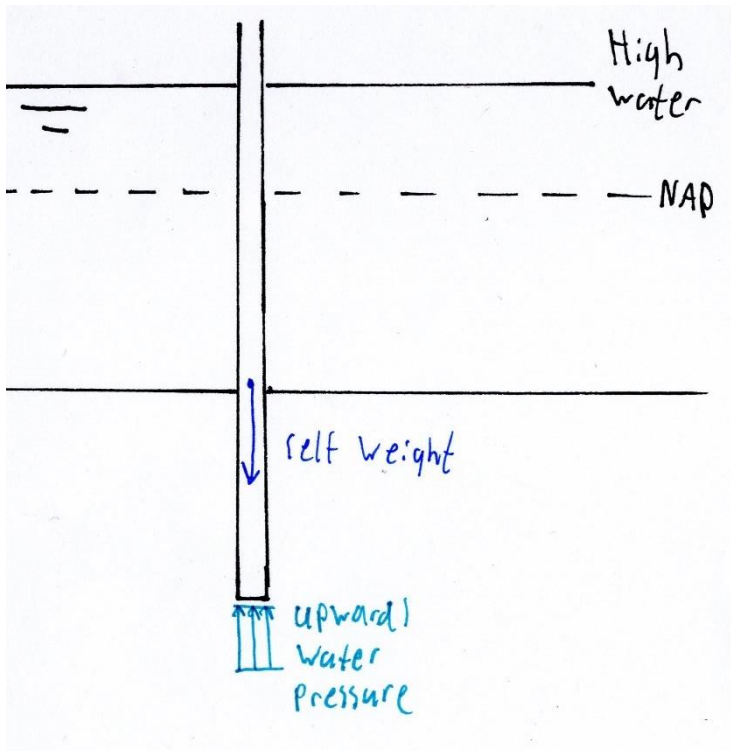 High
water
NAP
self weight
upward
water
pressure